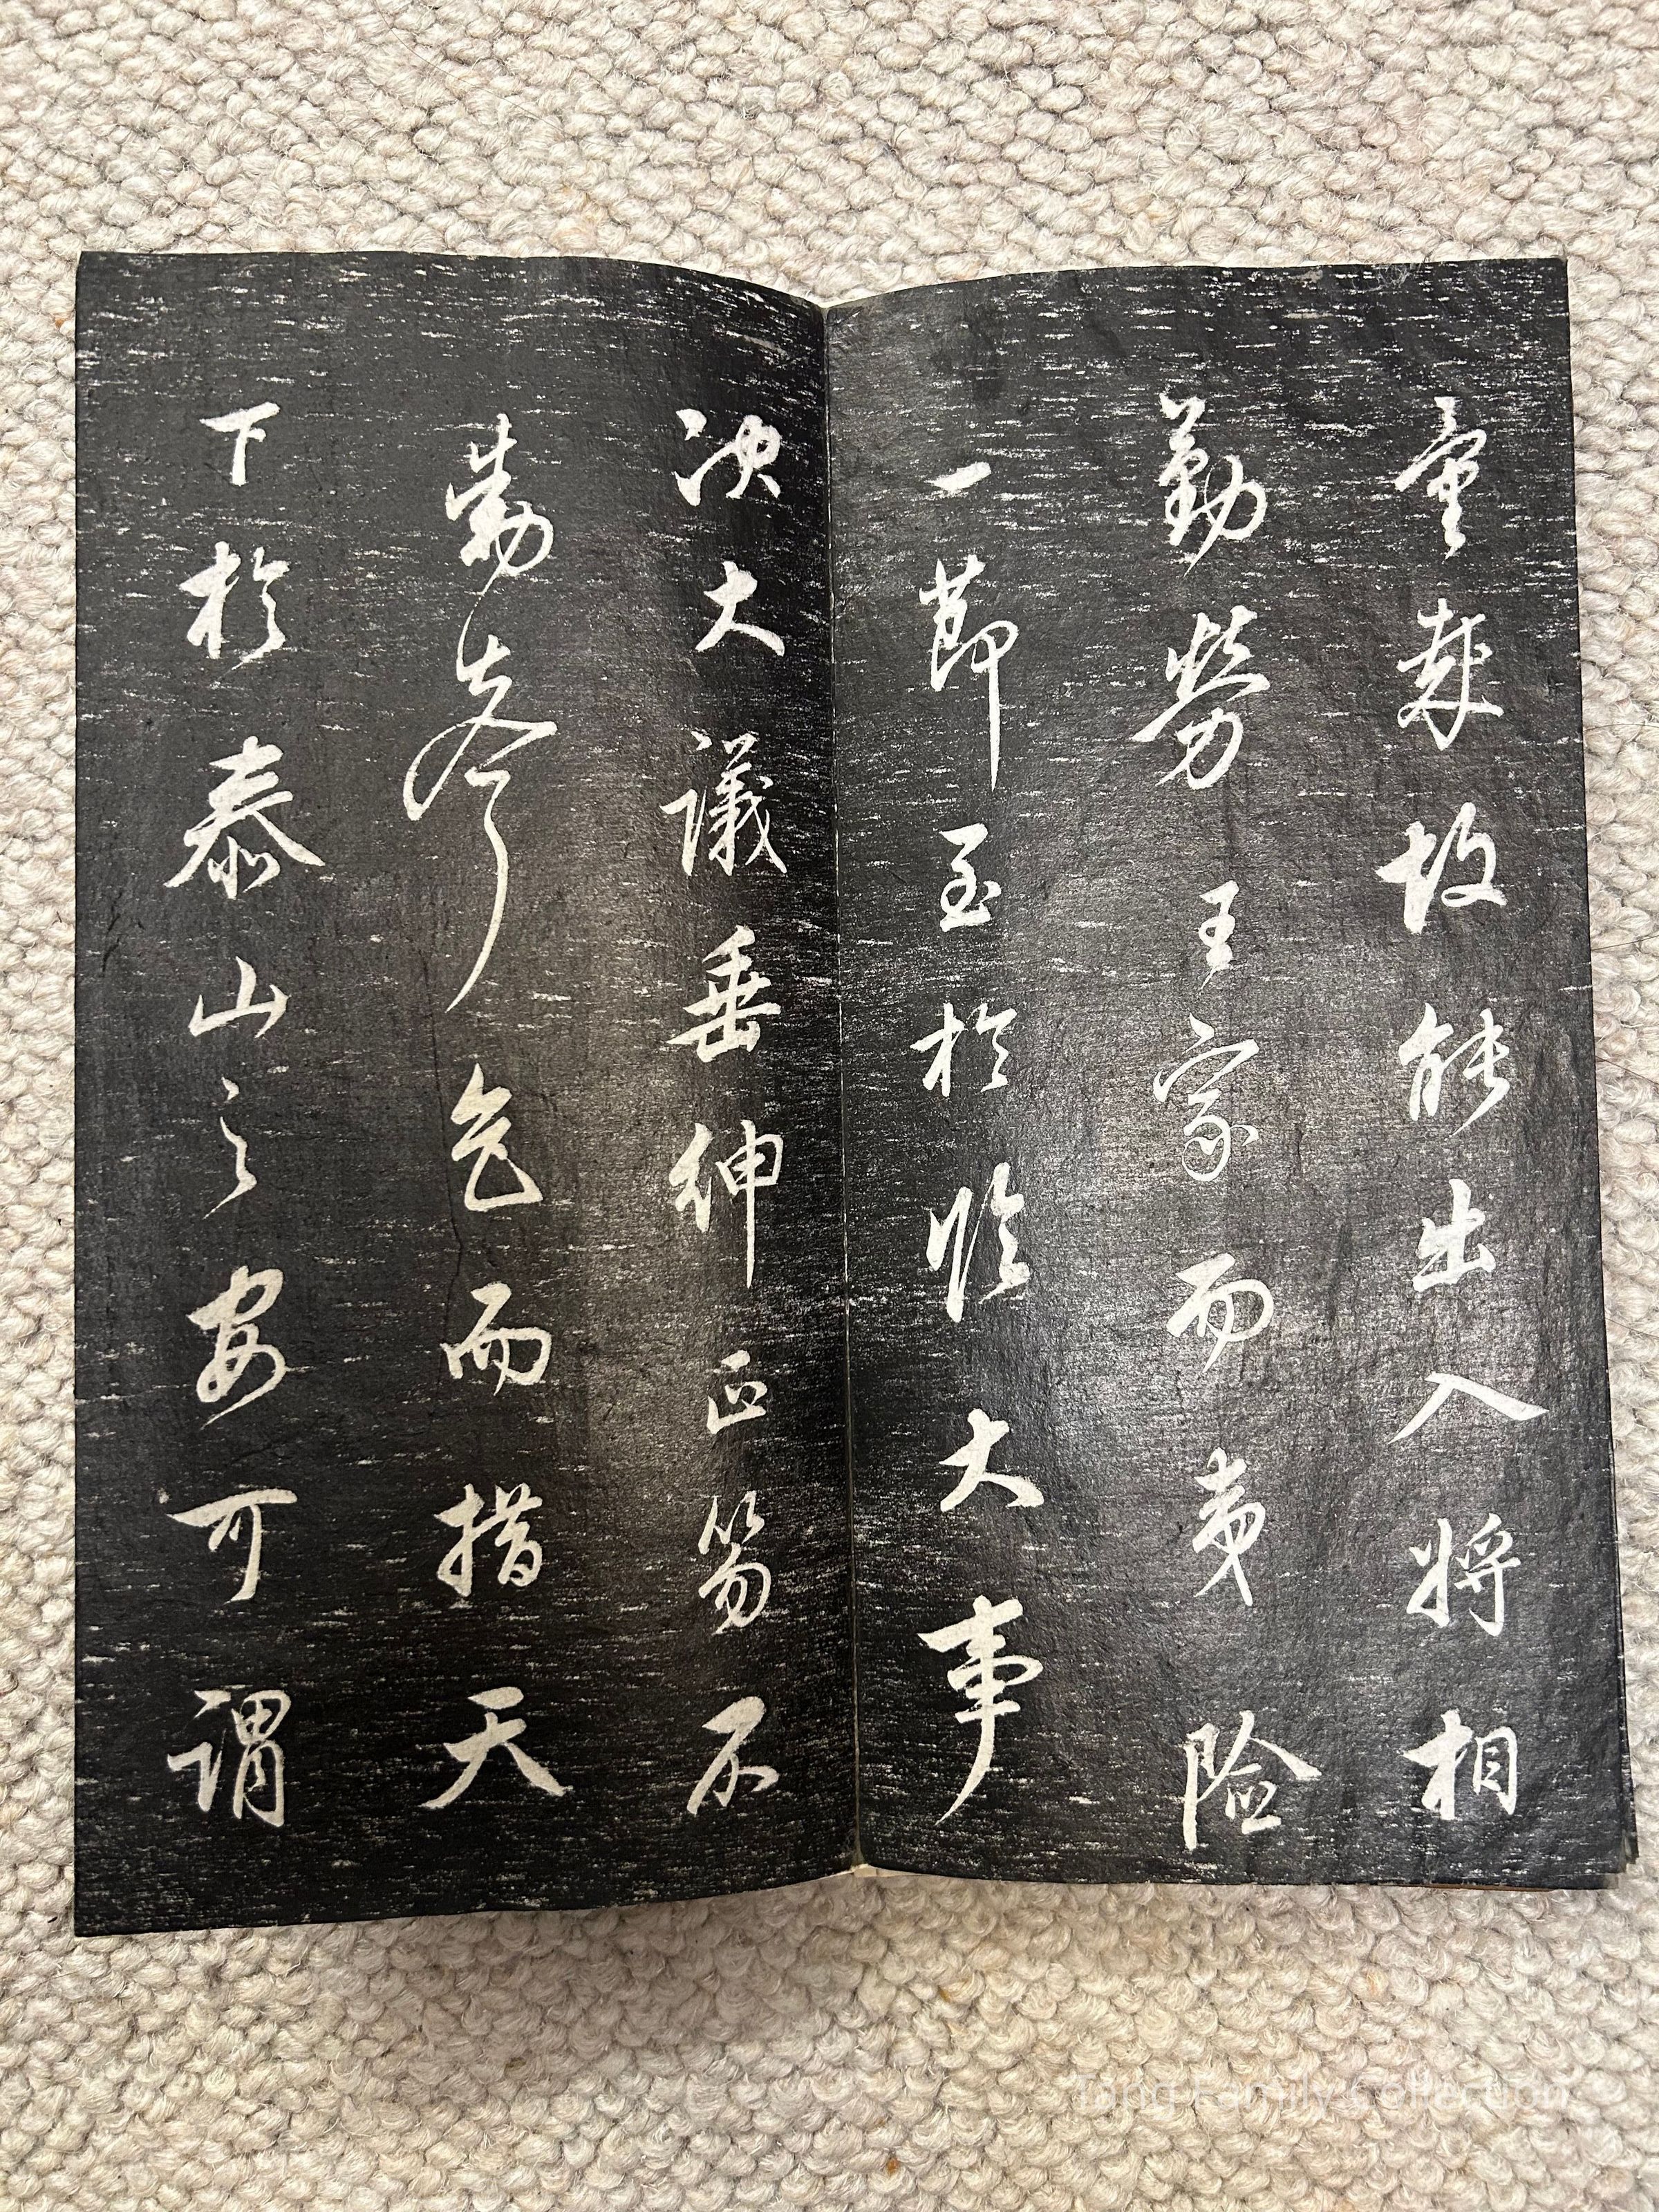 重哉故能出入將相
勤勞王家而夷險
一節至於臨大事
決大議垂紳正笏不
動聲色而措天
下於泰山之安可謂
Tang Family Collection